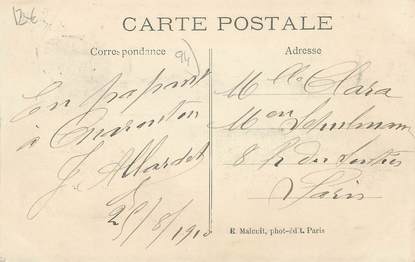 12€
CARTE POSTALE
Correspondance
94
Adresse
En passant
à Charenton
J. Allardet
25/8/1910
Mlle Clara
Mon Schulmann
8 R du Sentier
Paris
E. Malcuit, phot-édit. Paris